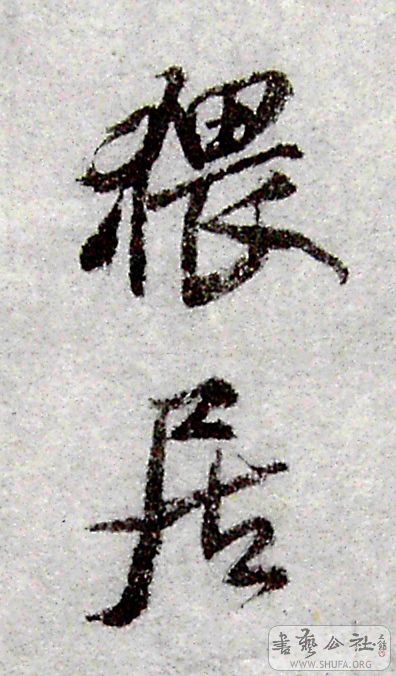 猥居
書藝公社
WWW.SHUFA.ORG